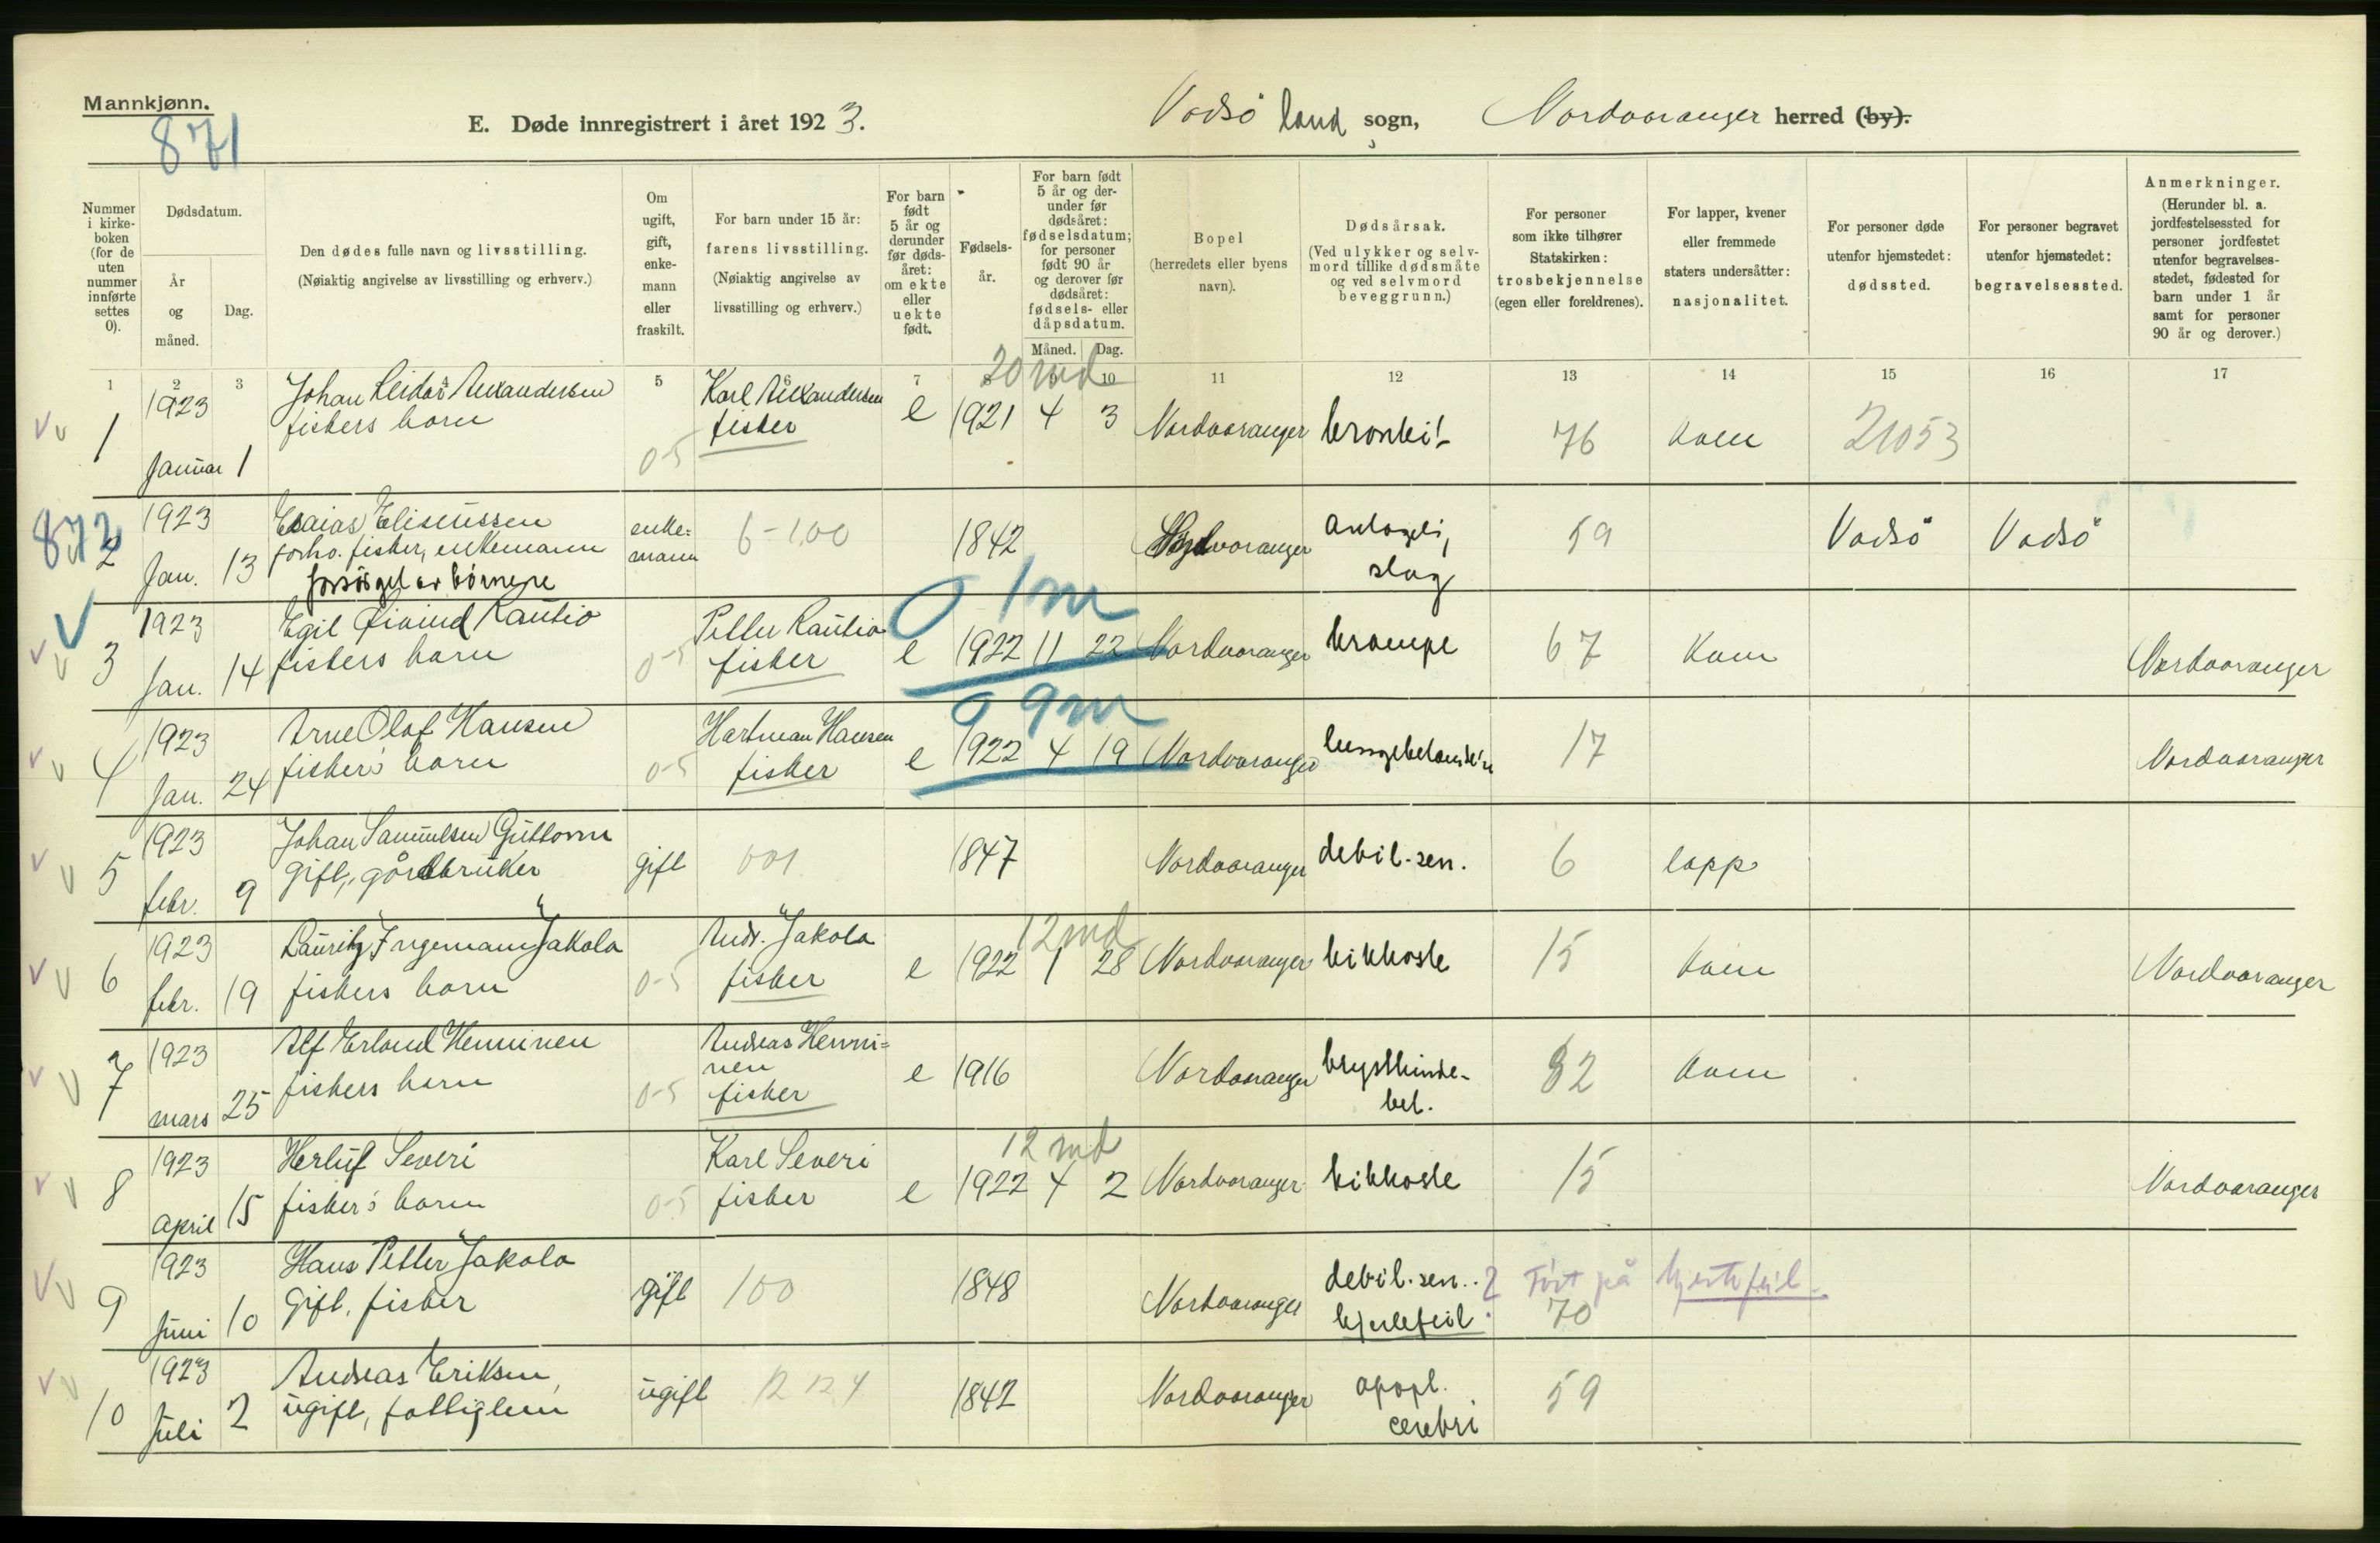 Mannkjønn.
871
E. Døde innregistrert i året 1923.
Vadsö land sogn, Nordvaranger herred (by).
Nummer i kirkeboken (for de uten nummer innførte settes 0).
Dødsdatum.
År og måned.
Dag.
Den dødes fulle navn og livsstilling.
(Nøiaktig angivelse av livsstilling og erhverv.)
Om ugift, gift, enkemann eller fraskilt.
For barn under 15 år:
farens livsstilling.
(Nøiaktig angivelse av livsstilling og erhverv.)
For barn født 5 år og derunder før dødsåret: om ekte eller uekte født.
Fødselsår.
For barn født 5 år og derunder før dødsåret: fødselsdatum; for personer født 90 år og derover før dødsåret: fødsels- eller dåpsdatum.
Måned. Dag.
Bopel
(herredets eller byens navn).
Dødsårsak.
(Ved ulykker og selvmord tillike dødsmåte og ved selvmord beveggrunn.)
For personer som ikke tilhører Statskirken: trosbekjennelse (egen eller foreldrenes).
For lapper, kvener eller fremmede staters undersåtter: nasjonalitet.
For personer døde utenfor hjemstedet: dødssted.
For personer begravet utenfor hjemstedet: begravelsessted.
Anmerkninger.
(Herunder bl. a. jordfestelsessted for personer jordfestet utenfor begravelsesstedet, fødested for barn under 1 år samt for personer 90 år og derover.)
1 2 3 4 5 6 7 8 9 10 11 12 13 14 15 16 17
20 md
1 1923 Januar 1 Johan Reidar Alexandersen fiskers barn 0-5 Karl Alexandersen fisker e 1921 4 3 Nordvaranger bronkit 76 kven 21053
872
2 1923 Jan. 13 Esaias Eliseussen forhv. fisker, enkemann forsörget av börnene enkemann 6-100 1842 Nordvaranger antagelig slag 59 Vadsö Vadsö
0 1m
3 1923 Jan. 14 Egil Öivind Rautio fiskers barn 0-5 Petter Rautio fisker e 1922 11 22 Nordvaranger krampe 67 Kven Nordvaranger
0 9m
4 1923 Jan. 24 Arne Olaf Hansen fisker's barn 0-5 Hartman Hansen fisker e 1922 4 19 Nordvaranger 17 Nordvaranger
5 1923 febr. 9 Johan Samuelsen Guttorm gift, gårdbruker gift 001 1847 Nordvaranger debil. sen. 6 lapp
12 md
6 1923 febr. 19 Lauritz Ingemann Jakola fiskers barn 0-5 Andr. Jakola fisker e 1922 1 28 Nordvaranger kikhoste 15 kven Nordvaranger
7 1923 mars 25 Alf Erland Henninen fiskers barn 0-5 Andreas Henninen fisker e 1916 Nordvaranger brysthinde-bet. 82 kven
12 md
8 1923 april 15 Herluf Severi fisker's barn 0-5 Karl Severi fisker e 1922 4 2 Nordvaranger kikhoste 15 Nordvaranger
9 1923 Juni 10 Hans Petter Jakola gift, fisker gift 100 1848 Nordvaranger debil. sen. ? hjertefeil. Ført på hjertefeil. 70
10 1923 Juli 2 Andreas Eriksen, ugift, fattiglem ugift 12 124 1842 Nordvaranger apopl. cerebri 59